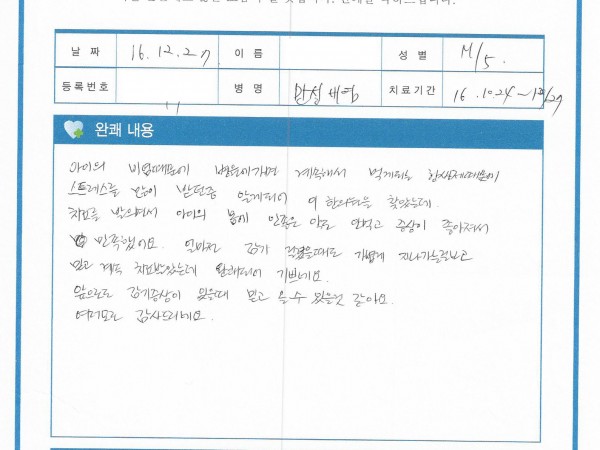 날 짜 16.12.27 이 름 성 별 M/5
등록번호 병 명 만성비염 치료기간 16.10.24~12/27
완쾌 내용
아이의 비염때문에 병원에가면 계속해서 먹게되는 항생제때문에
스트레스를 많이 받던중 알게되어 이 한의원을 찾았는데
치료를 받으면서 아이의 몸에 안좋은 약도 안먹고 증상이 좋아져서
만족했어요. 얼마전 감기 걸렸을때도 가볍게 지나가는걸보고
믿고 계속 치료받았는데 완쾌되어 기쁘네요.
앞으로도 감기증상이 있을때 믿고 올 수 있을것 같아요.
여러모로 감사드리네요.